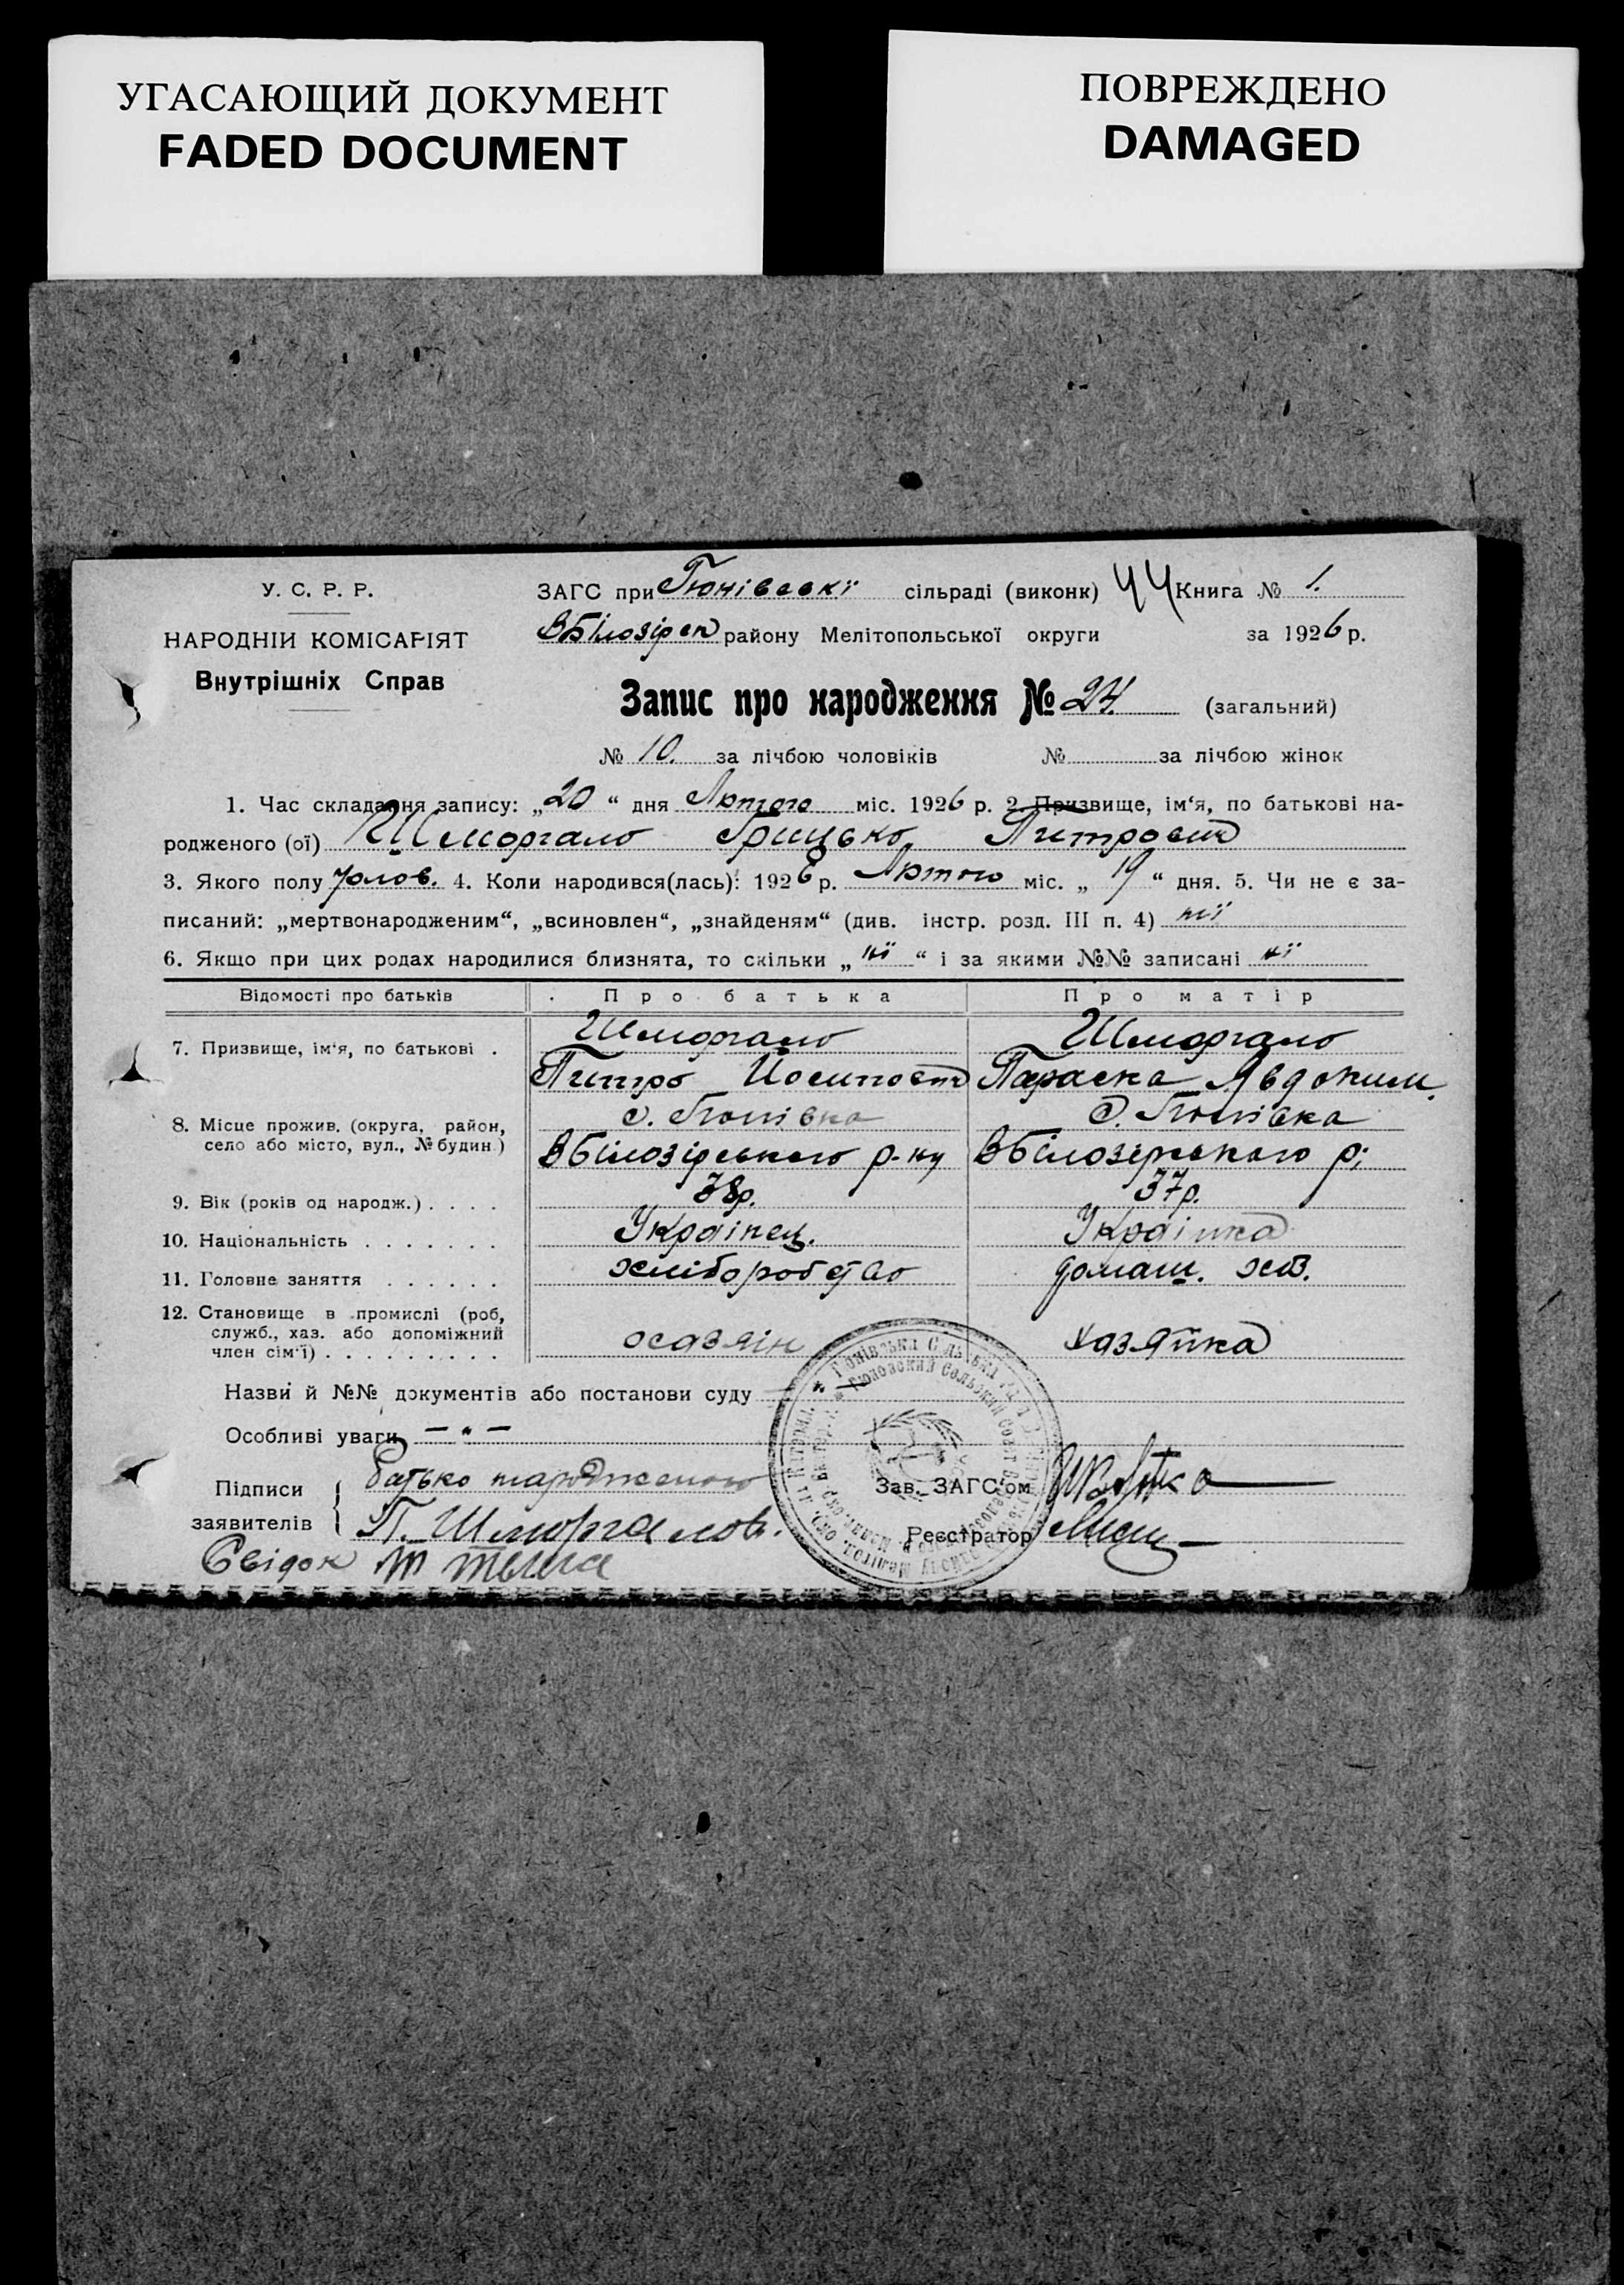 УГАСАЮЩИЙ ДОКУМЕНТ
FADED DOCUMENT
ПОВРЕЖДЕНО
DAMAGED
У. С. Р. Р.
НАРОДНІЙ КОМІСАРІЯТ
Внутрішніх Справ
ЗАГС при Гюнівскі сільраді (виконк) 44 Книга № 1.
ВБілозірск району Мелітопольської округи за 1926 р.
Запис про народження № 24. (загальний)
№ 10. за лічбою чоловіків № за лічбою жінок
1. Час складання запису: „20“ дня Лютого міс. 1926 р. 2. Призвище, ім'я, по батькові на-
родженого (ої) Шморгало Грицько Питрович
3. Якого полу чолов. 4. Коли народився(лась): 1926 р. Лютого міс. „19“ дня. 5. Чи не є за-
писаний: „мертвонародженим“, „всиновлен“, „знайденям“ (див. інстр. розд. III п. 4) ні
6. Якщо при цих родах народилися близнята, то скільки „ні“ і за якими №№ записані ні
Відомості про батьків Про батька Про матір
7. Призвище, ім'я, по батькові . Шморгало Шморгало
Питро Йосипович Параска Явдоким.
8. Місце прожив. (округа, район, с. Гюнівка с. Гюнівка
село або місто, вул., № будин.) ВБілозірського р-ну ВБілозірського р.
9. Вік (років од народж.) . . . . 38р. 37р.
10. Національність . . . . . . . Українец. Українка
11. Головне заняття . . . . . . хліборобство домаш. хоз.
12. Становище в промислі (роб,
служб., хаз. або допоміжний хазяін хазяйка
член сім'ї) . . . . . . . . .
Назви й №№ документів або постанови суду — „ —
Особливі уваги — „ —
Підписи Батько народженого Зав. ЗАГС'ом
заявителів П. Шморгалов. Реєстратор
Свідок